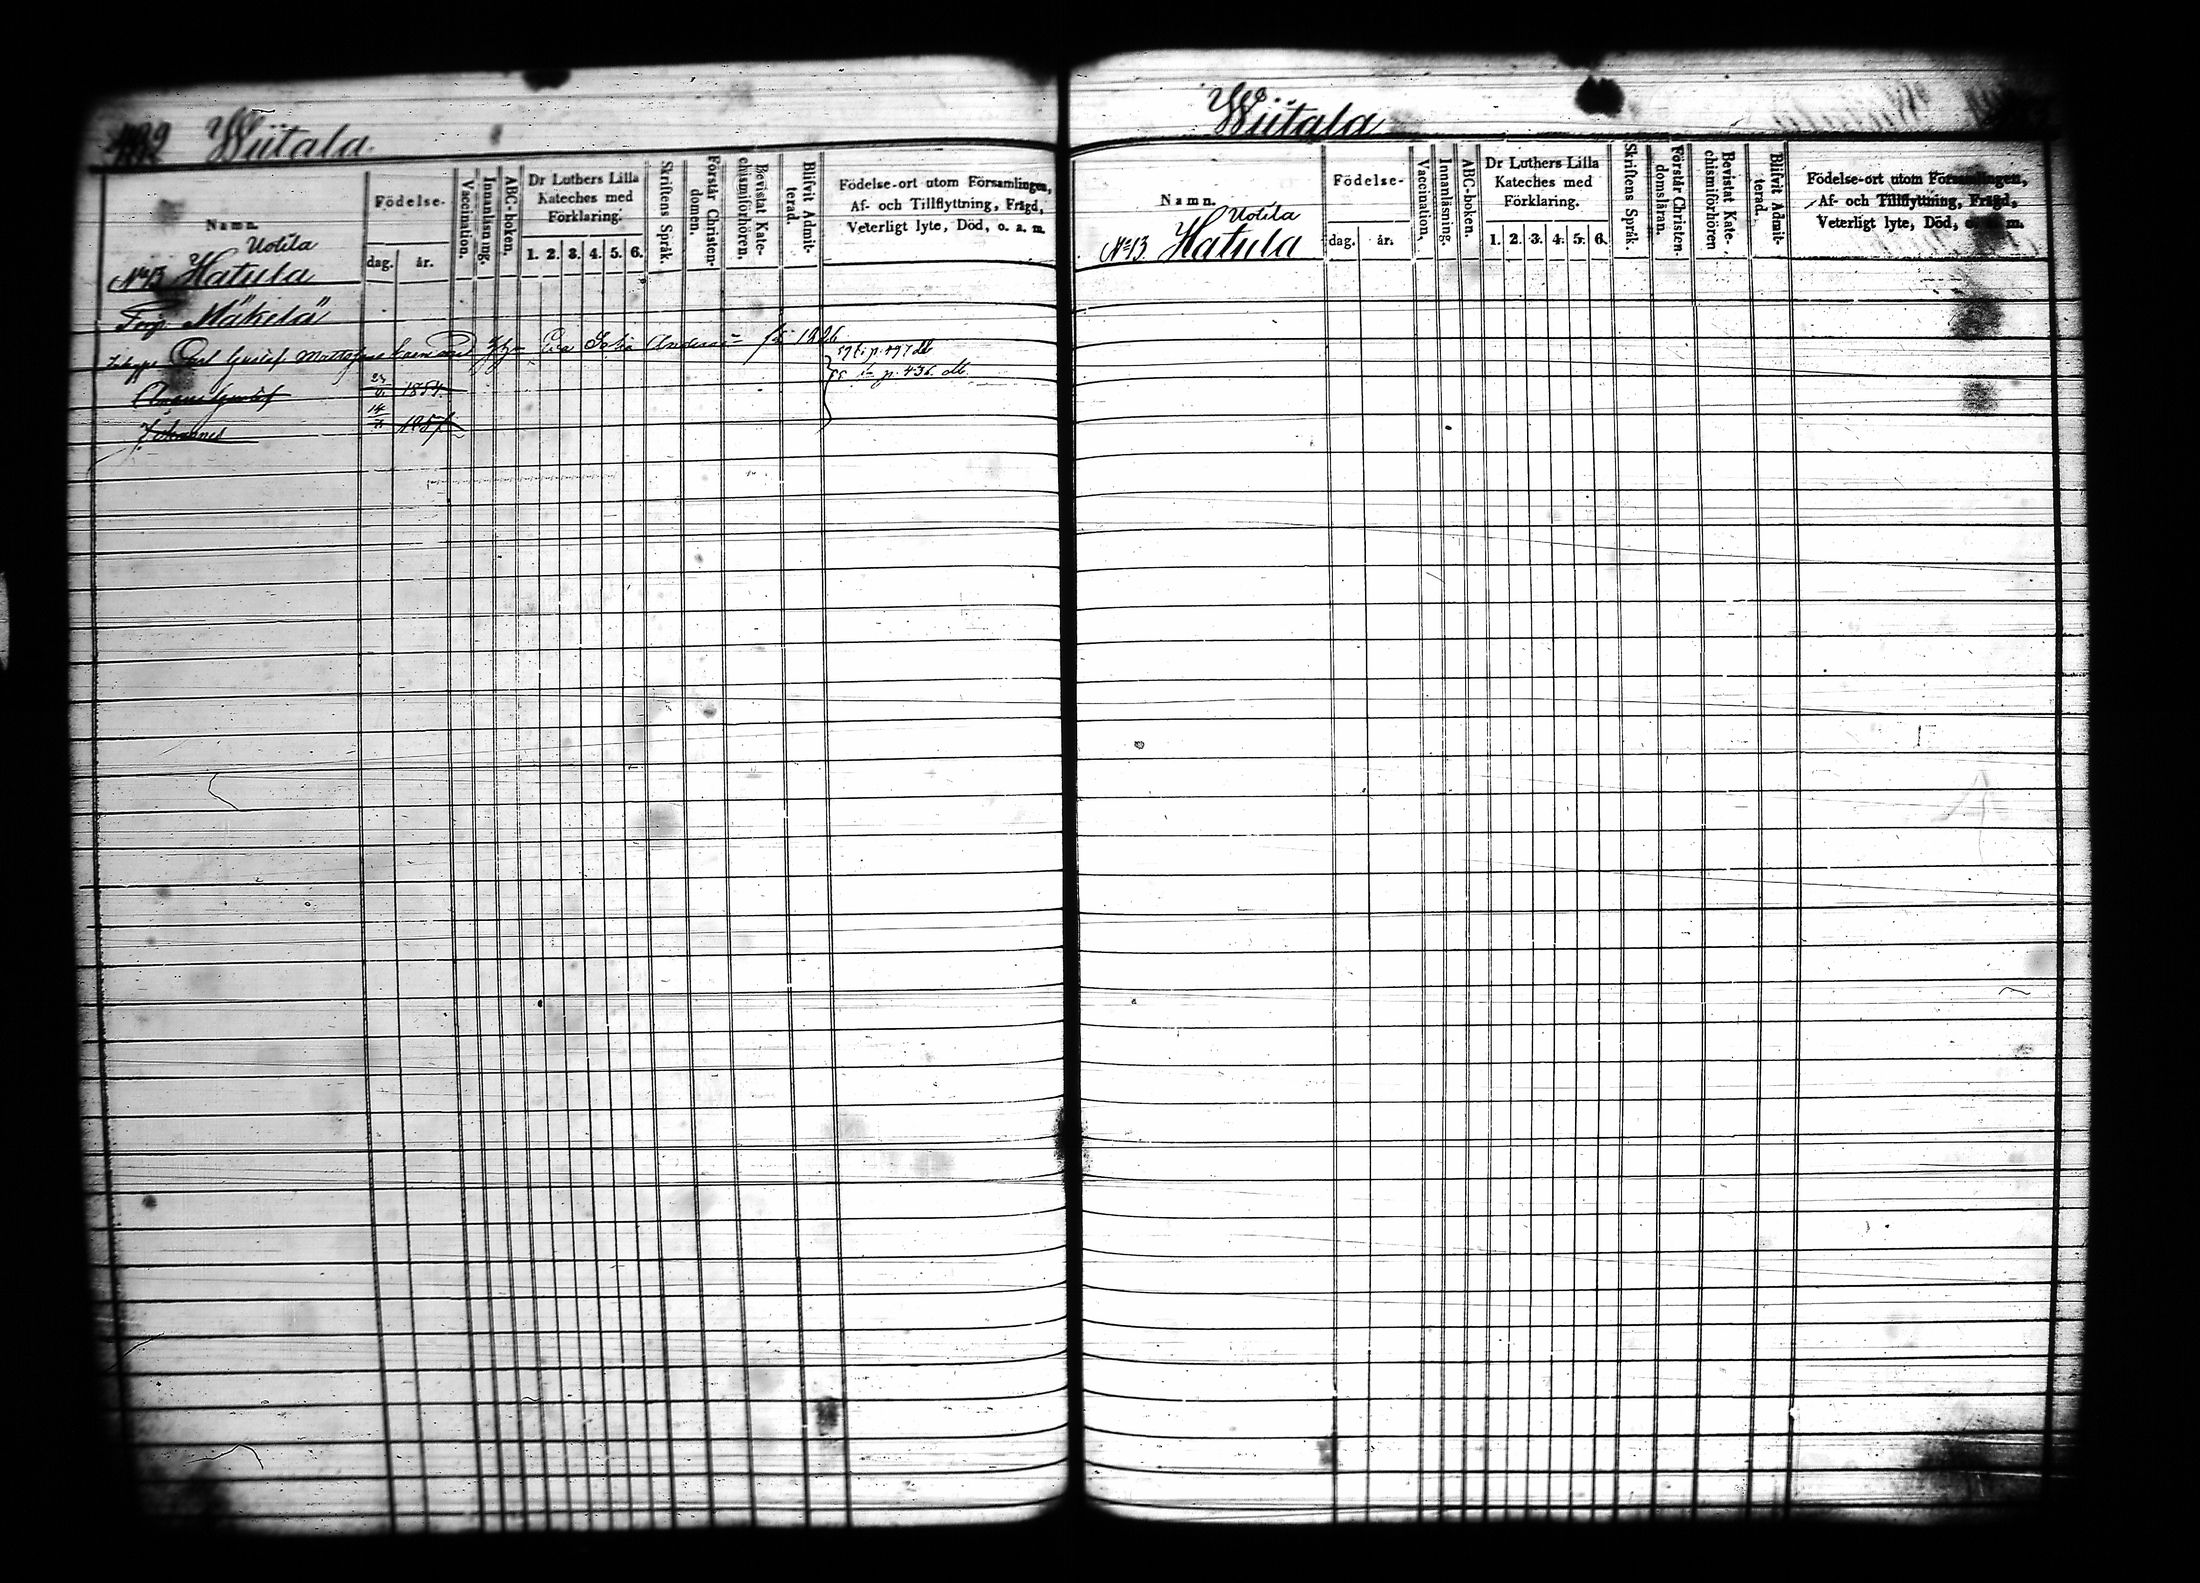 432 Wiitala.
Namn.
Födelse-
dag. år.
Vaccination.
Innanläsning.
ABC-boken.
Dr Luthers Lilla
Kateches med
Förklaring.
1. 2. 3. 4. 5. 6.
Skriftens Språk.
Förstår Christen-
domen.
Bevistat Kate-
chismiförhören.
Blifvit Admit-
terad.
Födelse-ort utom Församlingen,
Af- och Tillflyttning, Frägd,
Veterligt lyte, Död, o. s. m.
Uotila
No 13 Hatula
Torp. Mäkelä
Carl Gustaf Mattsson Eva Andersd:r 1826
p. 497 db
p. 436. db.
Gustaf 1854
Johannes 14 1857
Wiitala
Namn.
Födelse-
dag. år.
Vaccination.
Innanläsning.
ABC-boken.
Dr Luthers Lilla
Kateches med
Förklaring.
1. 2. 3. 4. 5. 6.
Skriftens Språk.
Förstår Christen-
domsläran.
Bevistat Kate-
chismiförhören
Blifvit Admit-
terad.
Födelse-ort utom Församlingen,
Af- och Tillflyttning, Frägd,
Veterligt lyte, Död, o. s. m.
Uotila
No 13. Hatula